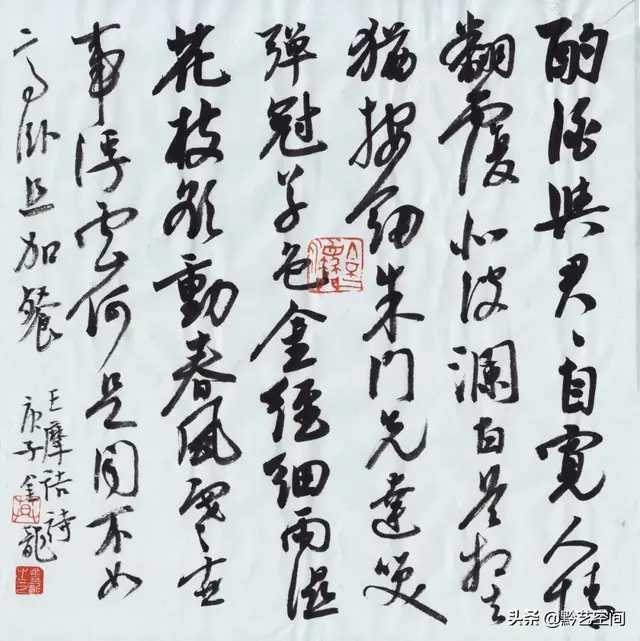 酌酒與君〻自寬人情
翻覆似波瀾白首相知
猶按劍朱門先達笑
彈冠草色全經細雨濕
花枝欲動春風寒世
事浮雲何足問不如
高卧且加餐
王摩詰詩
庚子金龍
头条 @黔艺空间